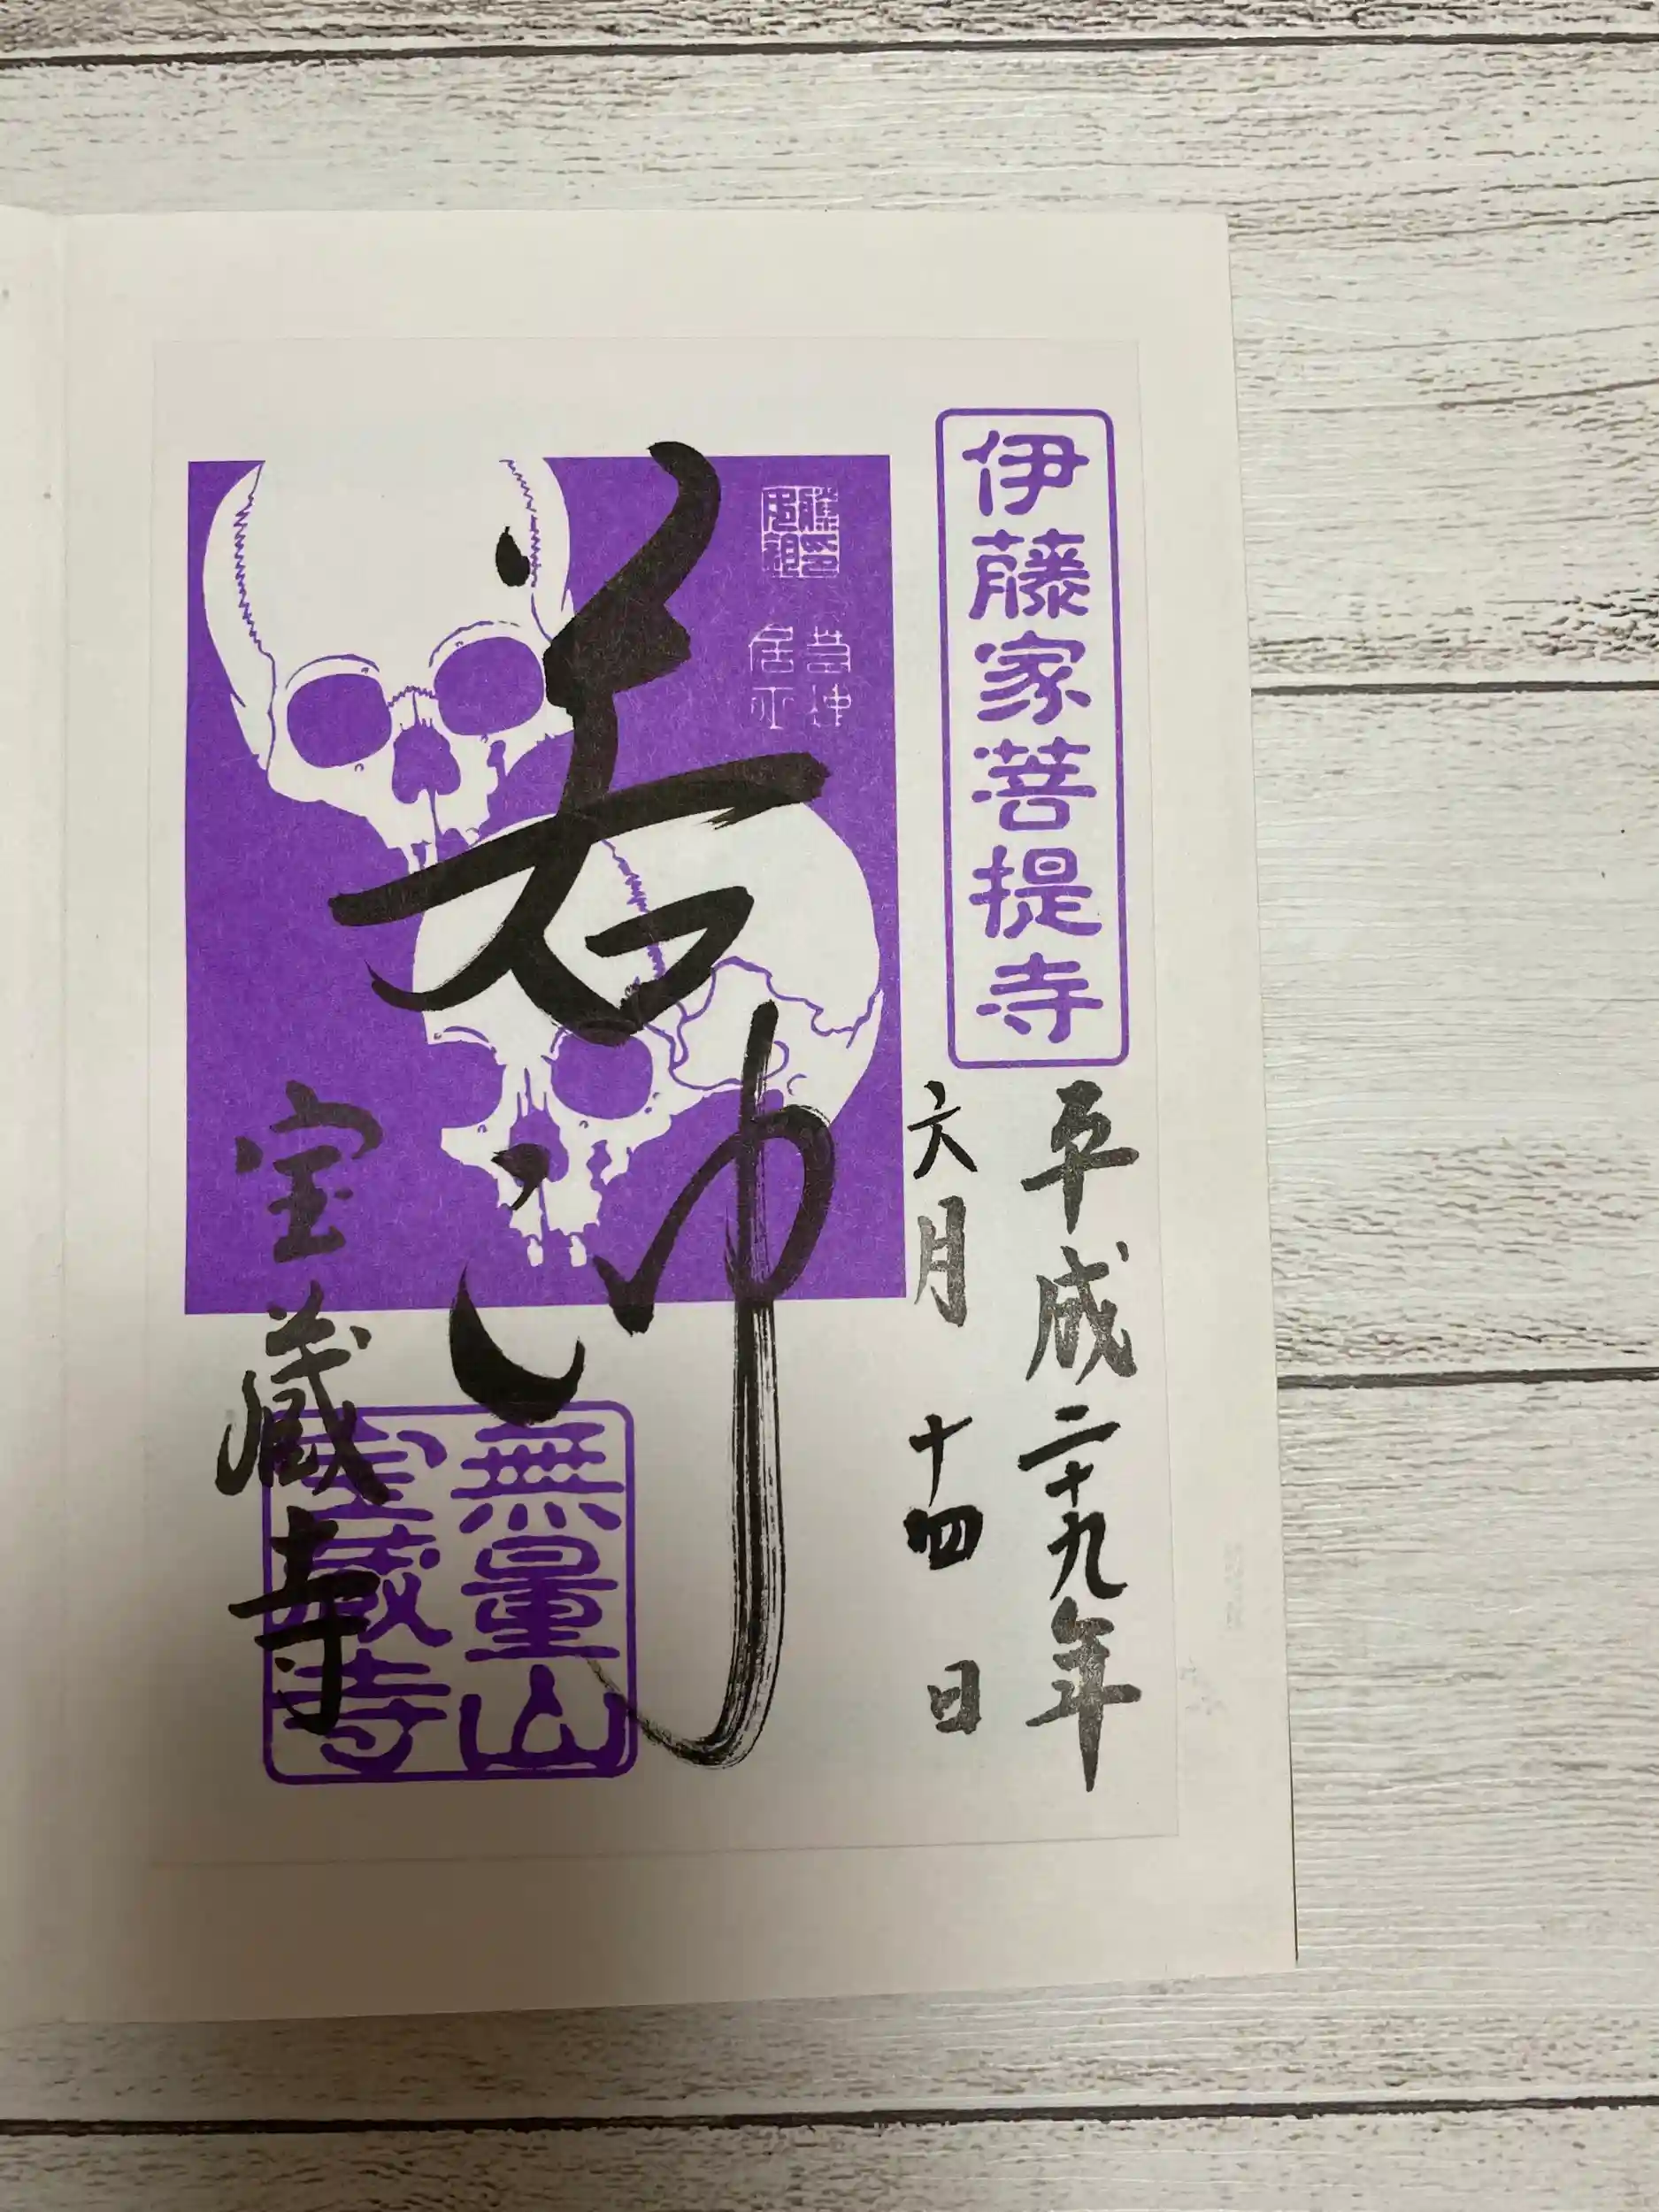 伊藤家菩提寺
平成二十九年
六月十四日
若冲
居士
若冲
無量山
宝蔵寺
宝蔵寺